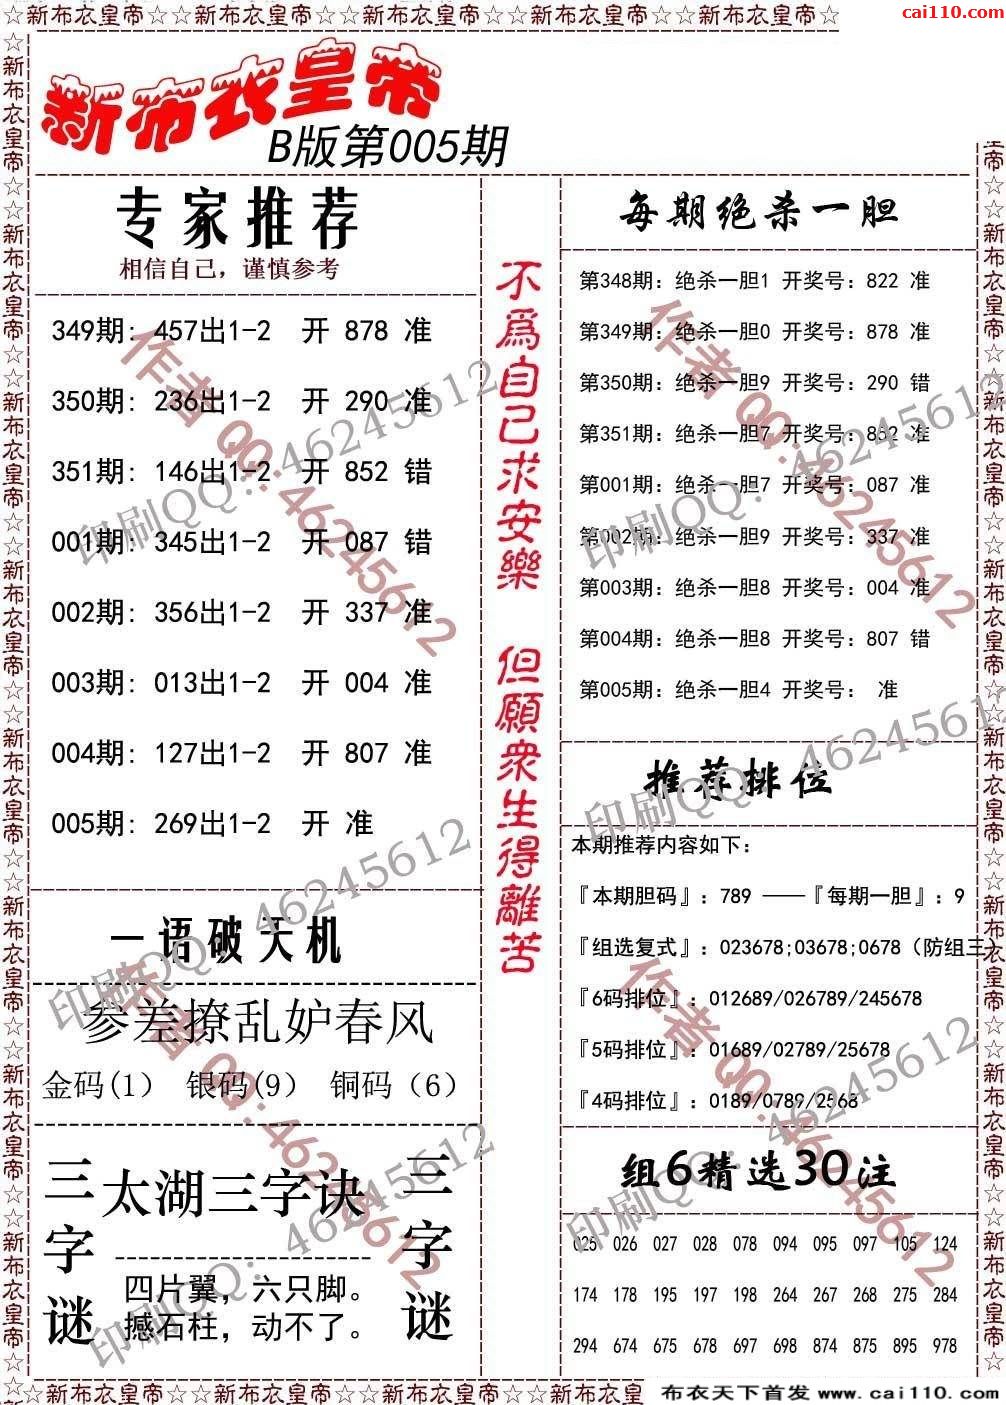 ☆新布衣皇帝☆新布衣皇帝☆新布衣皇帝☆新布衣皇帝☆新布衣皇帝☆新布衣皇帝☆
cai110.com
新布衣皇帝
B版第005期
专家推荐
相信自己，谨慎参考
349期: 457出1-2 开 878 准
350期: 236出1-2 开 290 准
351期: 146出1-2 开 852 错
001期: 345出1-2 开 087 错
002期: 356出1-2 开 337 准
003期: 013出1-2 开 004 准
004期: 127出1-2 开 807 准
005期: 269出1-2 开 准
一语破天机
参差撩乱妒春风
金码(1) 银码(9) 铜码（6）
三字谜
太湖三字诀
四片翼，六只脚。
撼石柱，动不了。
三字谜
不爲自己求安樂 但願衆生得離苦
每期绝杀一胆
第348期: 绝杀一胆1 开奖号: 822 准
第349期: 绝杀一胆0 开奖号: 878 准
第350期: 绝杀一胆9 开奖号: 290 错
第351期: 绝杀一胆7 开奖号: 852 准
第001期: 绝杀一胆7 开奖号: 087 准
第002期: 绝杀一胆9 开奖号: 337 准
第003期: 绝杀一胆8 开奖号: 004 准
第004期: 绝杀一胆8 开奖号: 807 错
第005期: 绝杀一胆4 开奖号: 准
推荐排位
本期推荐内容如下:
『本期胆码』: 789 ——『每期一胆』: 9
『组选复式』: 023678;03678;0678（防组三）
『6码排位』: 012689/026789/245678
『5码排位』: 01689/02789/25678
『4码排位』: 0189/0789/2568
组6精选30注
025 026 027 028 078 094 095 097 105 124
174 178 195 197 198 264 267 268 275 284
294 674 675 687 697 874 875 895 978
作者 QQ: 46245612
印刷QQ: 46245612
作者 QQ: 46245612
印刷QQ: 46245612
作者 QQ: 46245612
印刷QQ: 46245612
作者 QQ: 46245612
印刷QQ: 46245612
印刷QQ: 46245612
印刷QQ: 46245612
☆新布衣皇帝☆新布衣皇帝☆新布衣皇帝☆新布衣皇帝☆新布衣皇
布衣天下首发 www.cai110.com